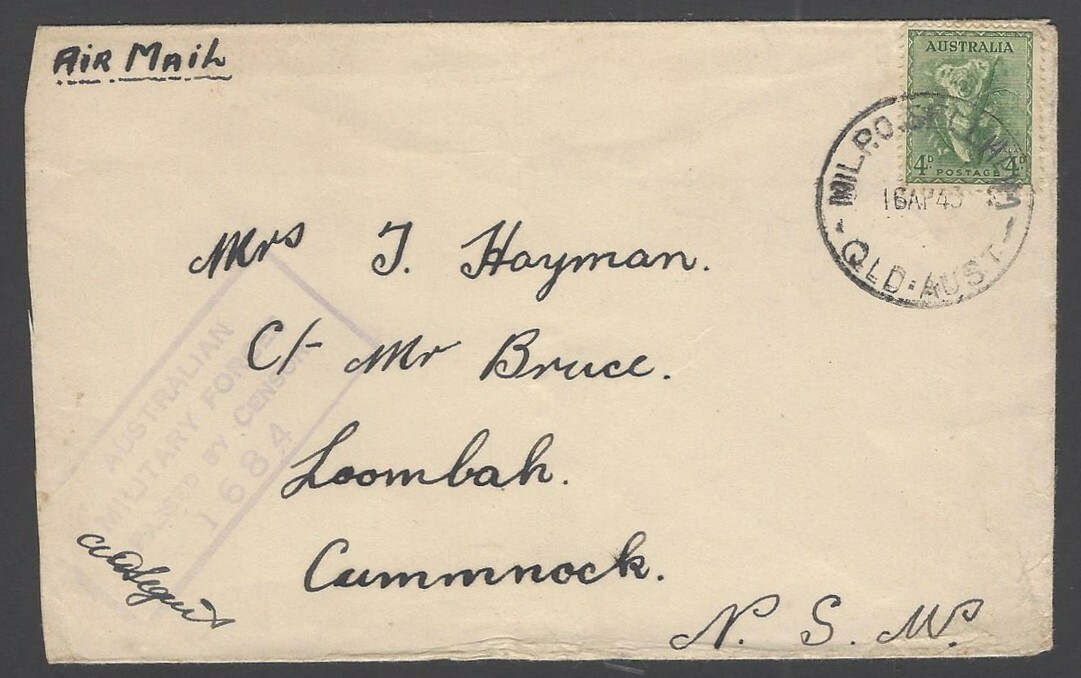 AIR MAIL
AUSTRALIA
4D POSTAGE 4D
MIL.P.O.
16AP43
QLD·AUST
Mrs J. Hayman.
C/- Mr Bruce.
Loombah.
Cummnock.
N. S. W.
AUSTRALIAN
MILITARY FORCES
PASSED BY CENSOR
1684